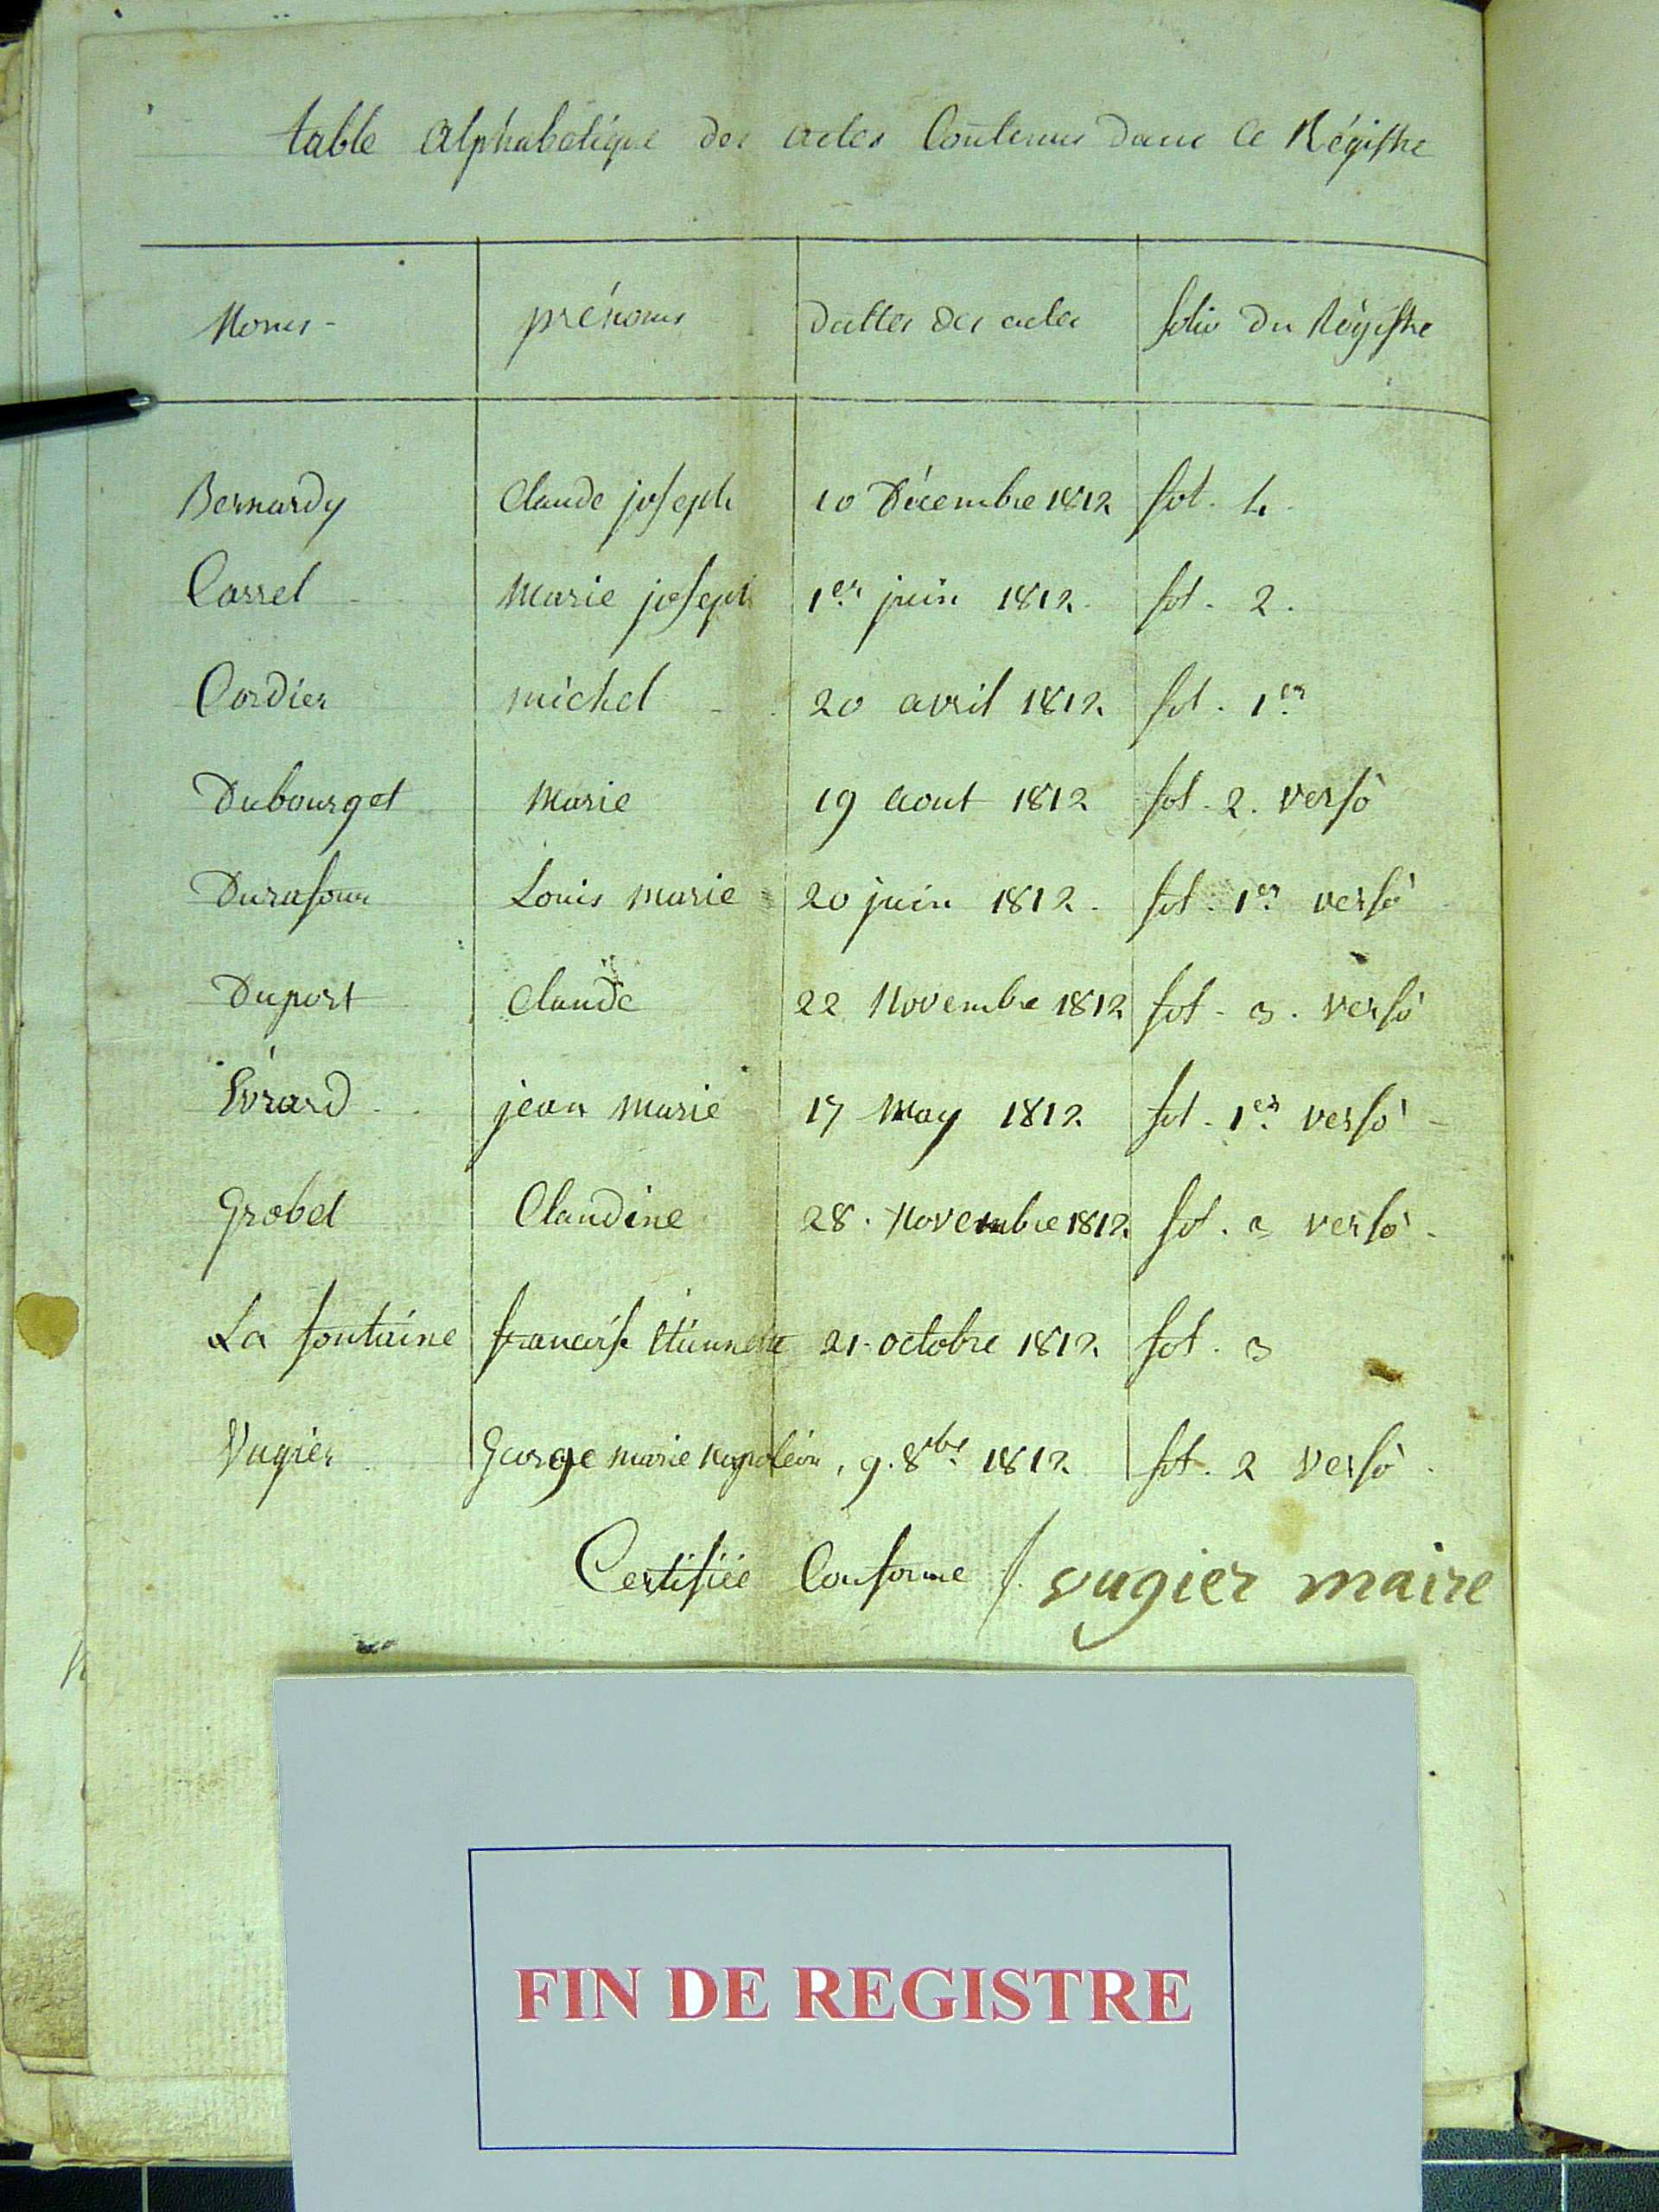 table alphabétique des actes Contenus dans ce Régistre
Noms - prénoms dattes des actes folio du Régistre
Bernardy Claude joseph 10 Décembre 1812 fol. 4.
Carrel Marie joseph 1er juin 1812. fol. 2.
Cordier michel 20 avril 1812. fol. 1er
Dubourget Marie 19 aout 1812 fol. 2. versò
Durafour Louis marie 20 juin 1812. fol. 1er versò
Duport Claude 22 Novembre 1812 fol. 3. versò
Evrard jean marie 17 May 1812 fol. 1er versò
Grobel Claudine 28. Novembre 1812. fol. 3 versò.
La fontaine francoise Etiennette 21. octobre 1812. fol. 3
Vugier George marie napoléon, 9. 8bre 1812 fol. 2 versò.
Certifiée Conforme /. vugier maire
FIN DE REGISTRE